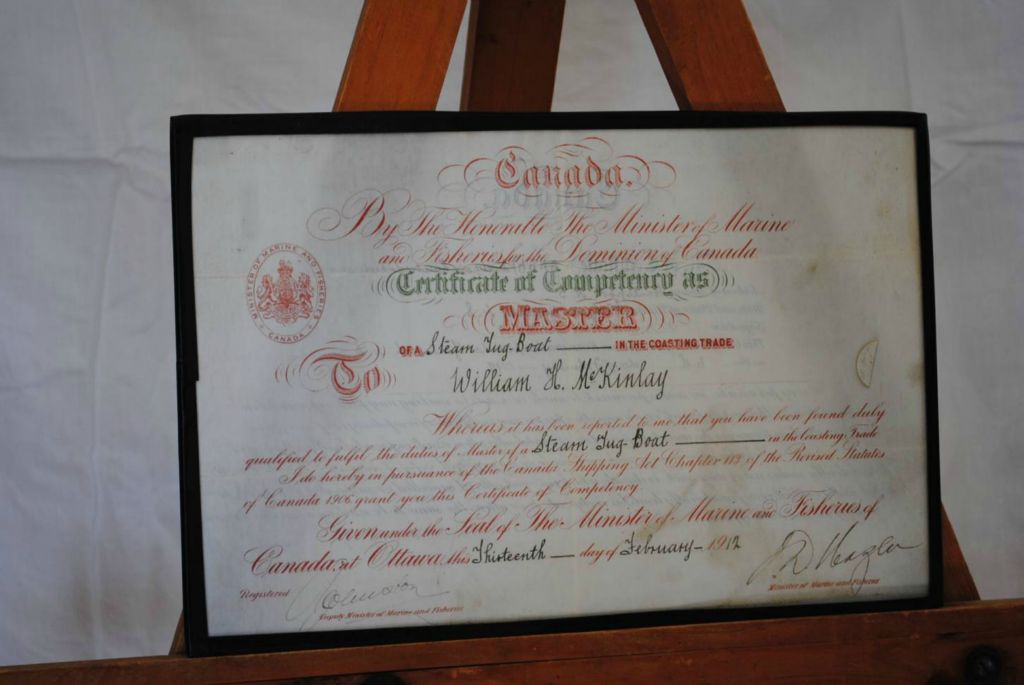 Canada.
By The Honorable The Minister of Marine
and Fisheries for the Dominion of Canada
Certificate of Competency as
MASTER
OF A Steam Tug-Boat IN THE COASTING TRADE
To
William H. McKinlay
MINISTER OF MARINE AND FISHERIES
CANADA
Whereas it has been reported to me that you have been found duly
qualified to fulfil the duties of Master of a Steam Tug-Boat in the Coasting Trade
I do hereby in pursuance of the Canada Shipping Act Chapter 113 of the Revised Statutes
of Canada 1906 grant you this Certificate of Competency
Given under the Seal of The Minister of Marine and Fisheries of
Canada at Ottawa this Thirteenth day of February 1912
Registered
Deputy Minister of Marine and Fisheries
J.D. Hazen
Minister of Marine and Fisheries